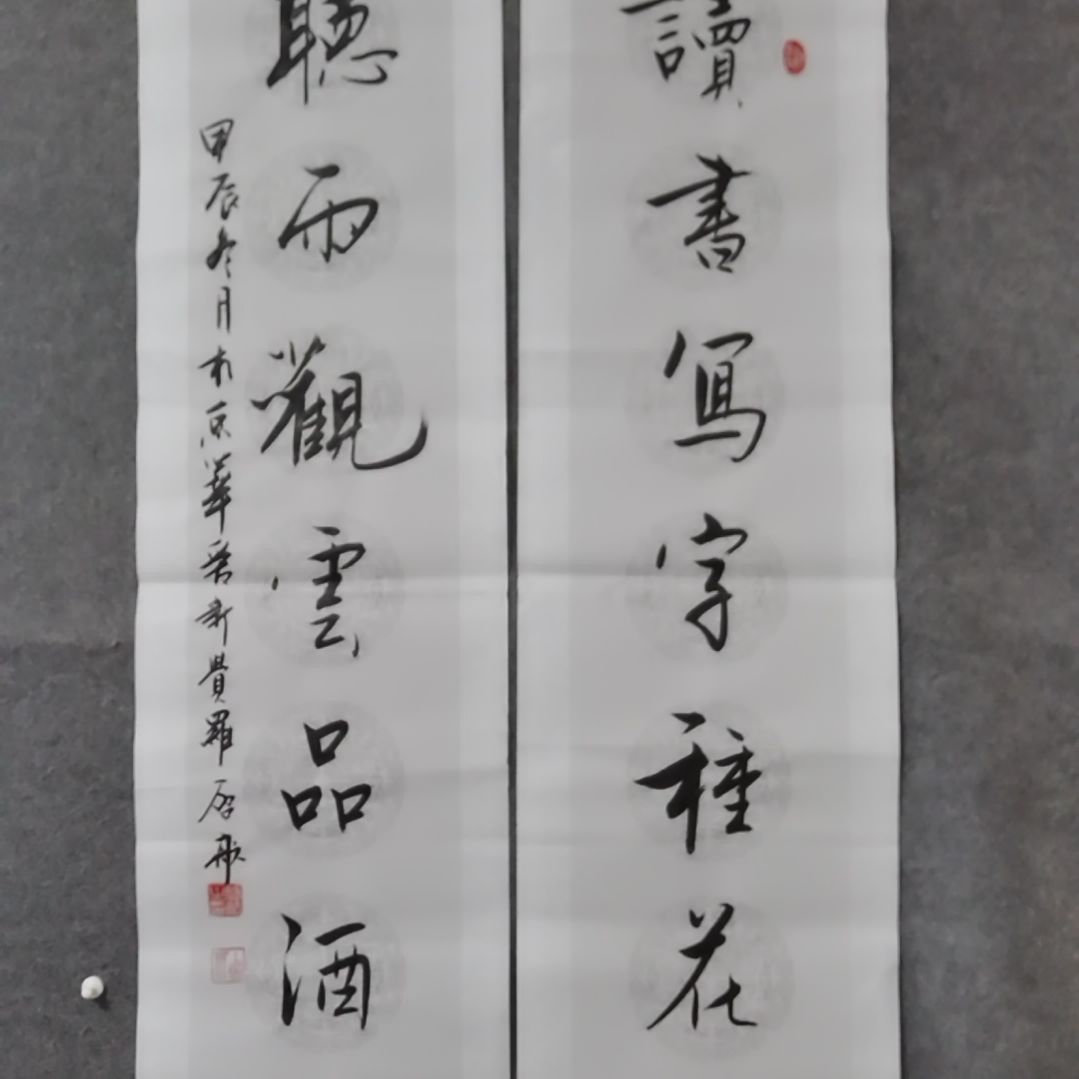 讀書寫字種花
聽雨觀雲品酒
甲辰冬月於京華愛新覺羅啟